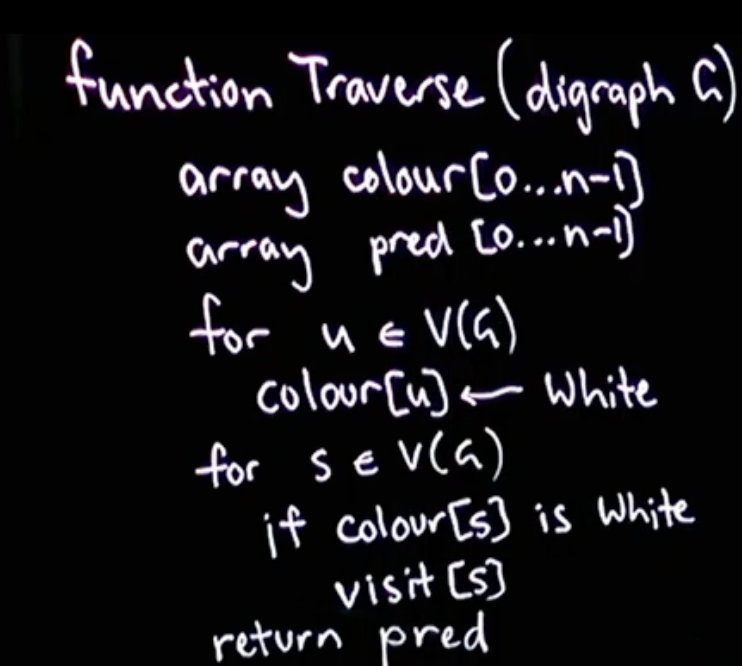 function Traverse (digraph G)
array colour[0...n-1]
array pred [0...n-1]
for u ∈ V(G)
colour[u] ← White
for s ∈ V(G)
if colour[s] is White
visit [s]
return pred